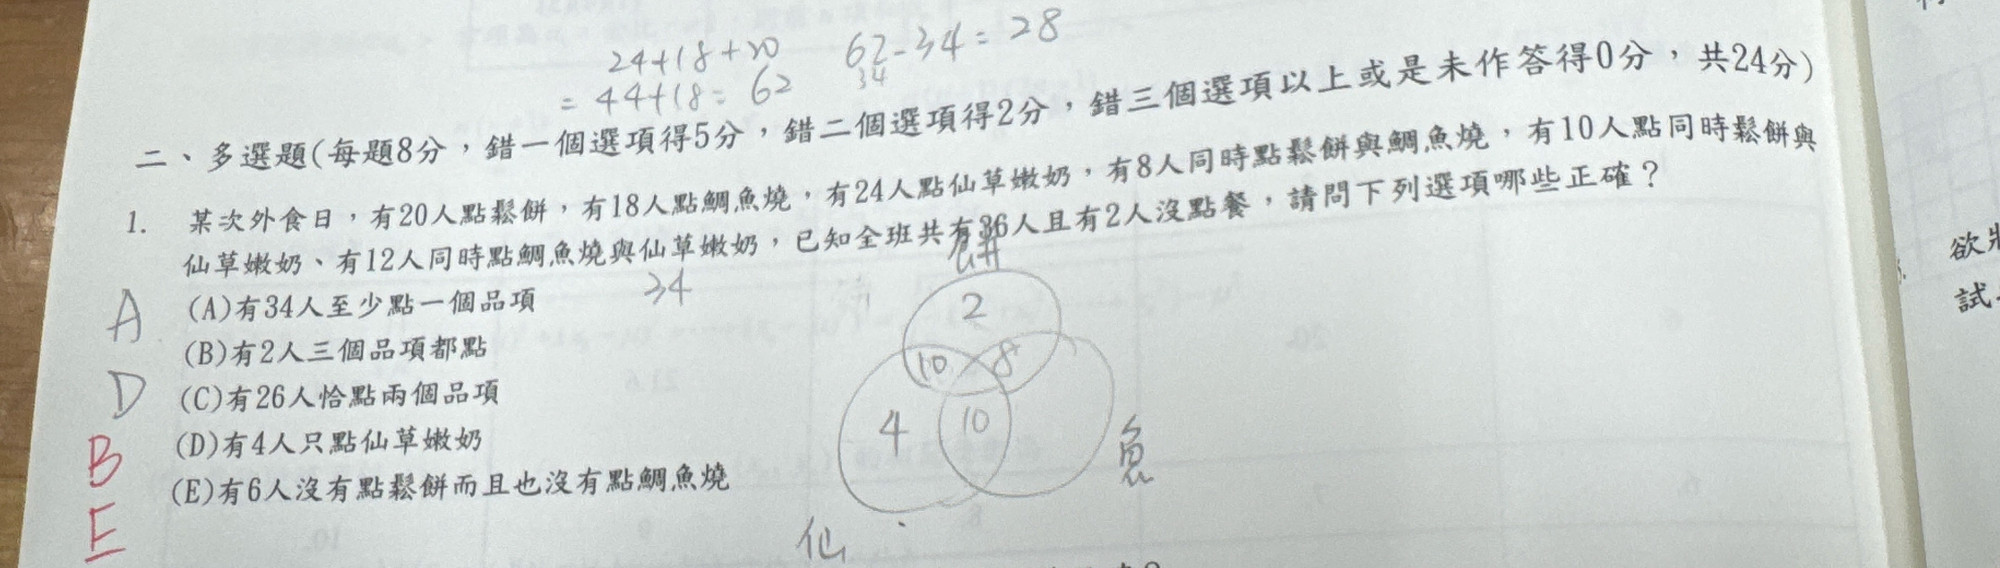 24+18+20
62-34=28
=44+18=62
34
二、多選題(每題8分，錯一個選項得5分，錯二個選項得2分，錯三個選項以上或是未作答得0分，共24分)
1. 某次外食日，有20人點鬆餅，有18人點鯛魚燒，有24人點仙草嫩奶，有8人同時點鬆餅與鯛魚燒，有10人點同時鬆餅與
仙草嫩奶、有12人同時點鯛魚燒與仙草嫩奶，已知全班共有36人且有2人沒點餐，請問下列選項哪些正確？
34
餅
A
(A)有34人至少點一個品項
2
(B)有2人三個品項都點
10 8
D
(C)有26人恰點兩個品項
4 10
(D)有4人只點仙草嫩奶
魚
B
(E)有6人沒有點鬆餅而且也沒有點鯛魚燒
E
仙
欲
試